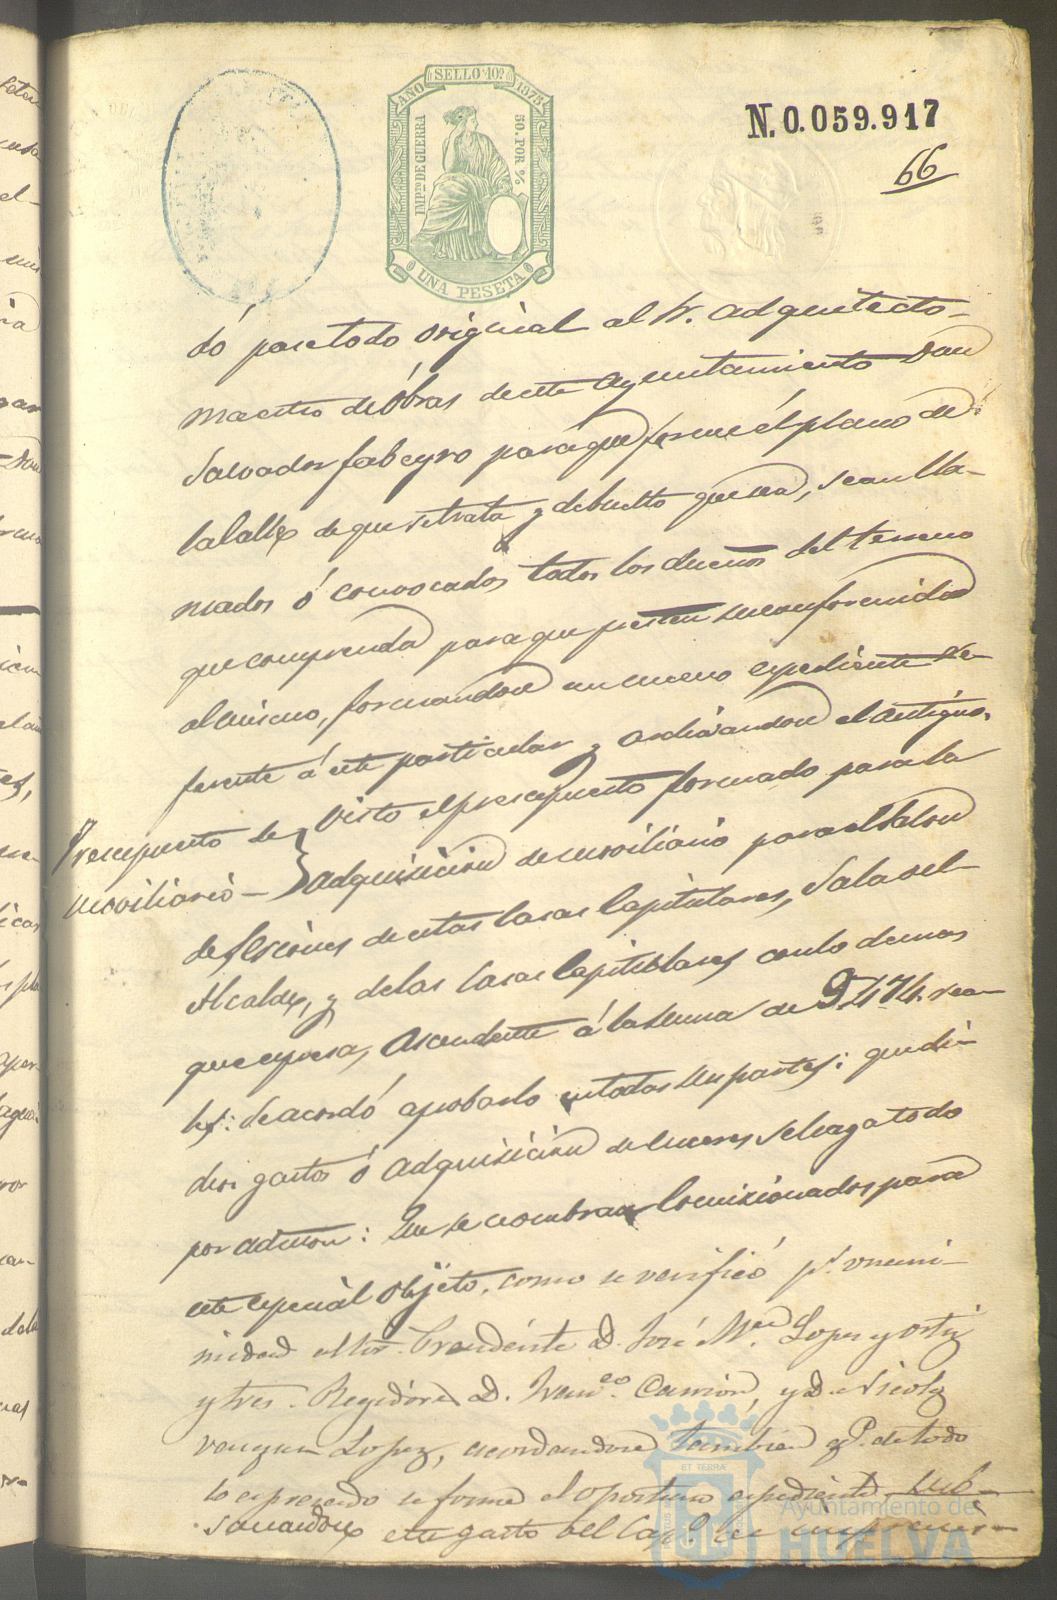 AÑO SELLO 10º 1875
IMPTO DE GUERRA
50. POR %
UNA PESETA
N. 0.059.917
66
dó pase todo original al Sr. Adquitecto-
maestro de Obras de este Ayuntamiento Don
Salvador Fabeyro para que forme él plano de
la Calle de que se trata y debuelto que sea, sean lla-
mados ó convocados todos los dueños del terreno
que comprenda para que presten su conformidad
al mismo, formandose un nuevo espediente re-
ferente á este particular y archivandose el antiguo.
Presupuesto de
moviliario -
Visto el presupuesto formado para la
adquisicion de moviliario para el Salon
de Sesiones de estas Casas Capitulares, Sala del
Alcalde, y de las Casas Capitulares con lo demas
que espresa, Ascendente á la suma de 9.474. rea-
les: Se acordó aprobarlo en todas sus partes: que di-
chos gastos ó adquisicion de enceres se haga todo
por admon: Que se nombran Comisionados para
este especial objeto, como se verificó pr. unani-
midad el Sor. Presidente D. José Mª Lopez y Ortiz
y tres Regidores D. Franco. Carrion, y D. Nicolas
Vazquez Lopez, acordandose tambien q. de todo
lo espresado se forme el oportuno espediente,
este gasto del Cap. de
ET TERRÆ
Ayuntamiento de
HUELVA